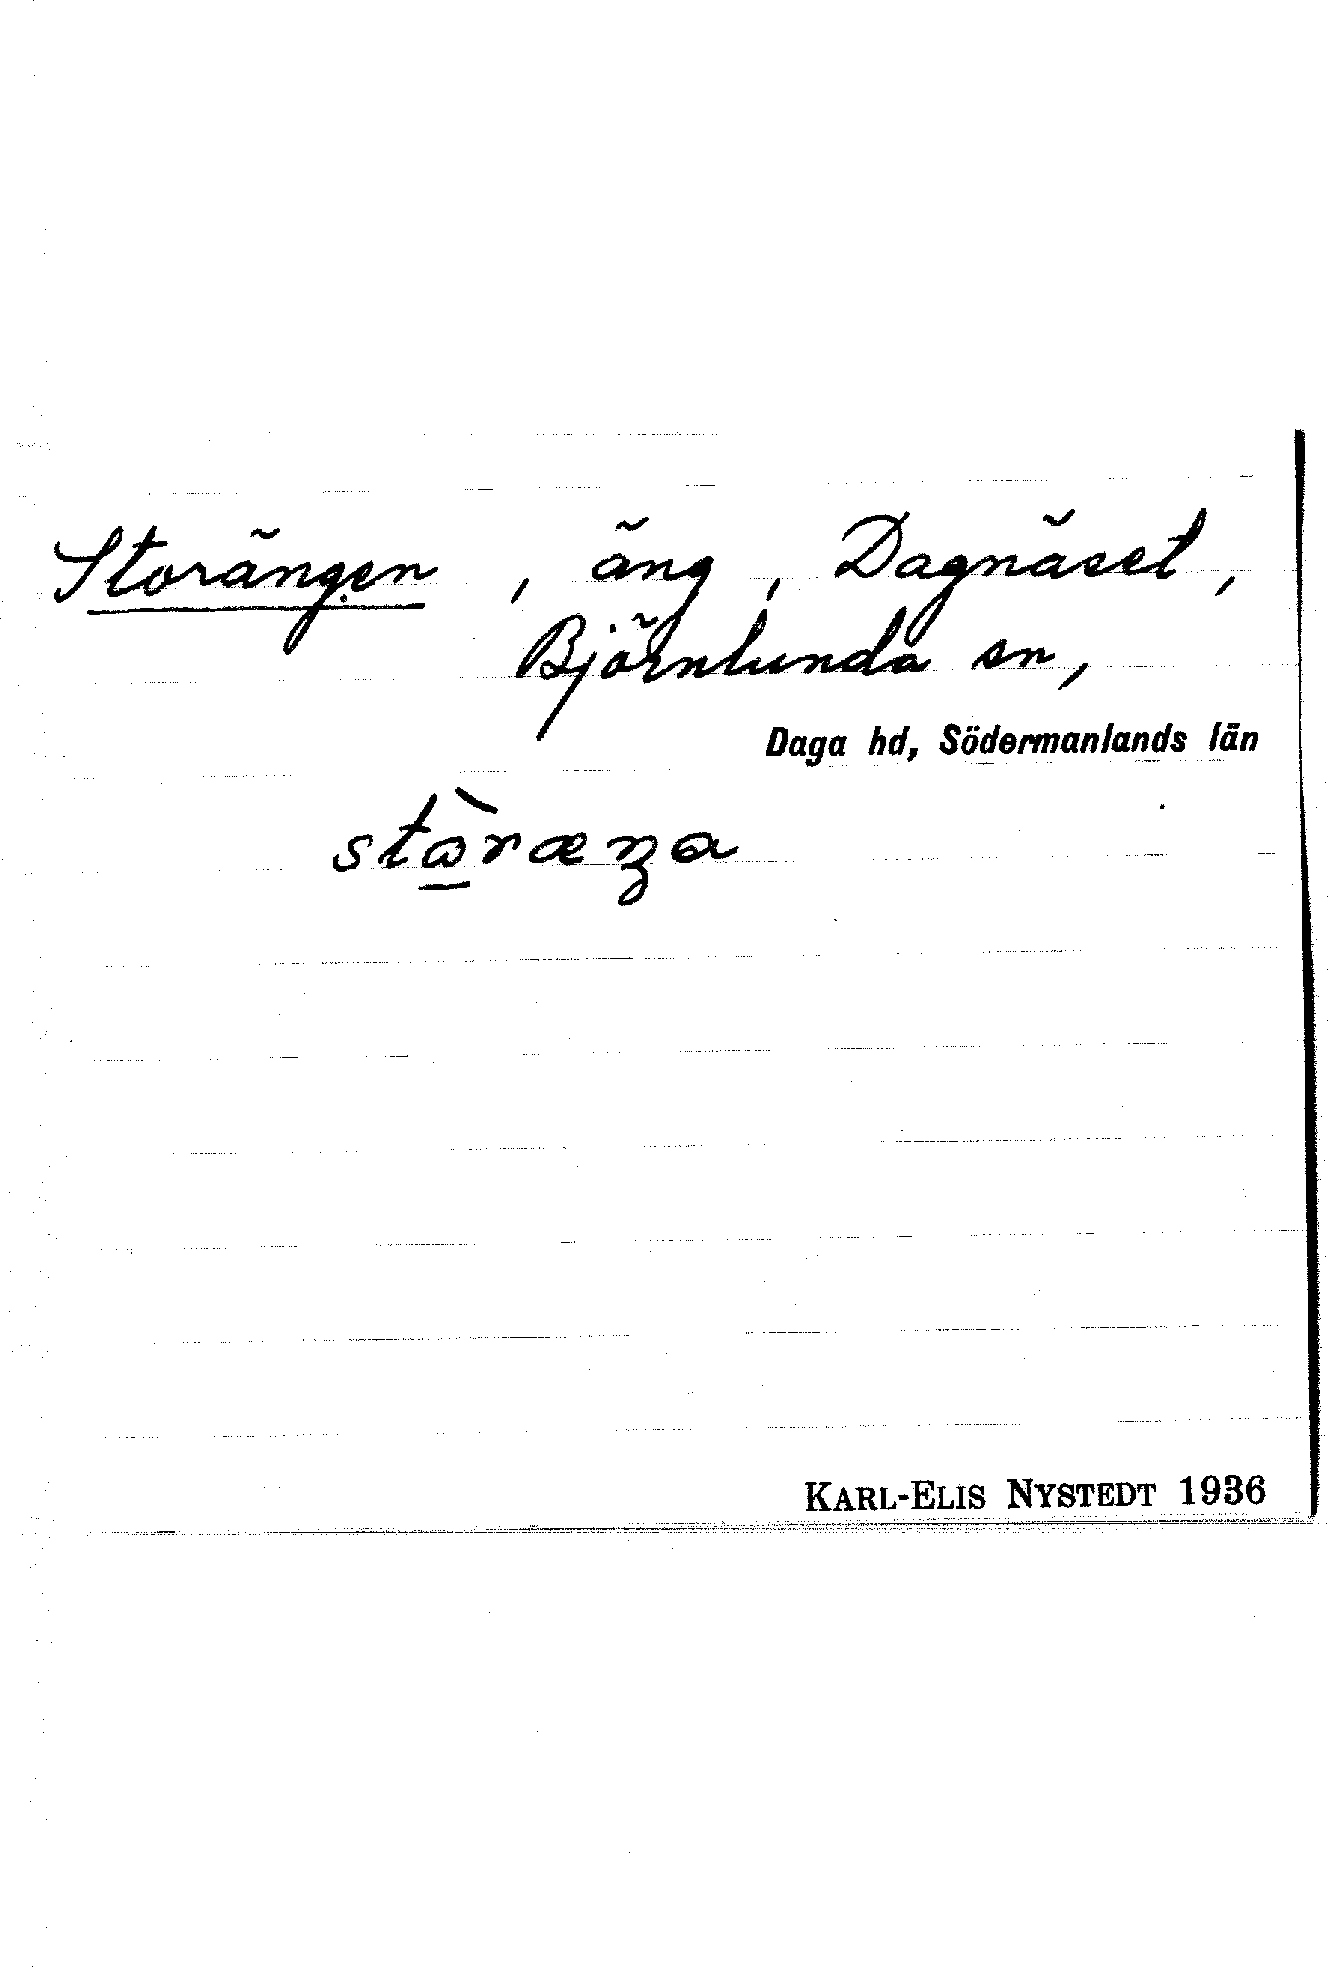 Storängen, äng, Dagnäset,
Björnlunda sn,
Daga hd, Södermanlands län
stὼræŋa
KARL-ELIS NYSTEDT 1936